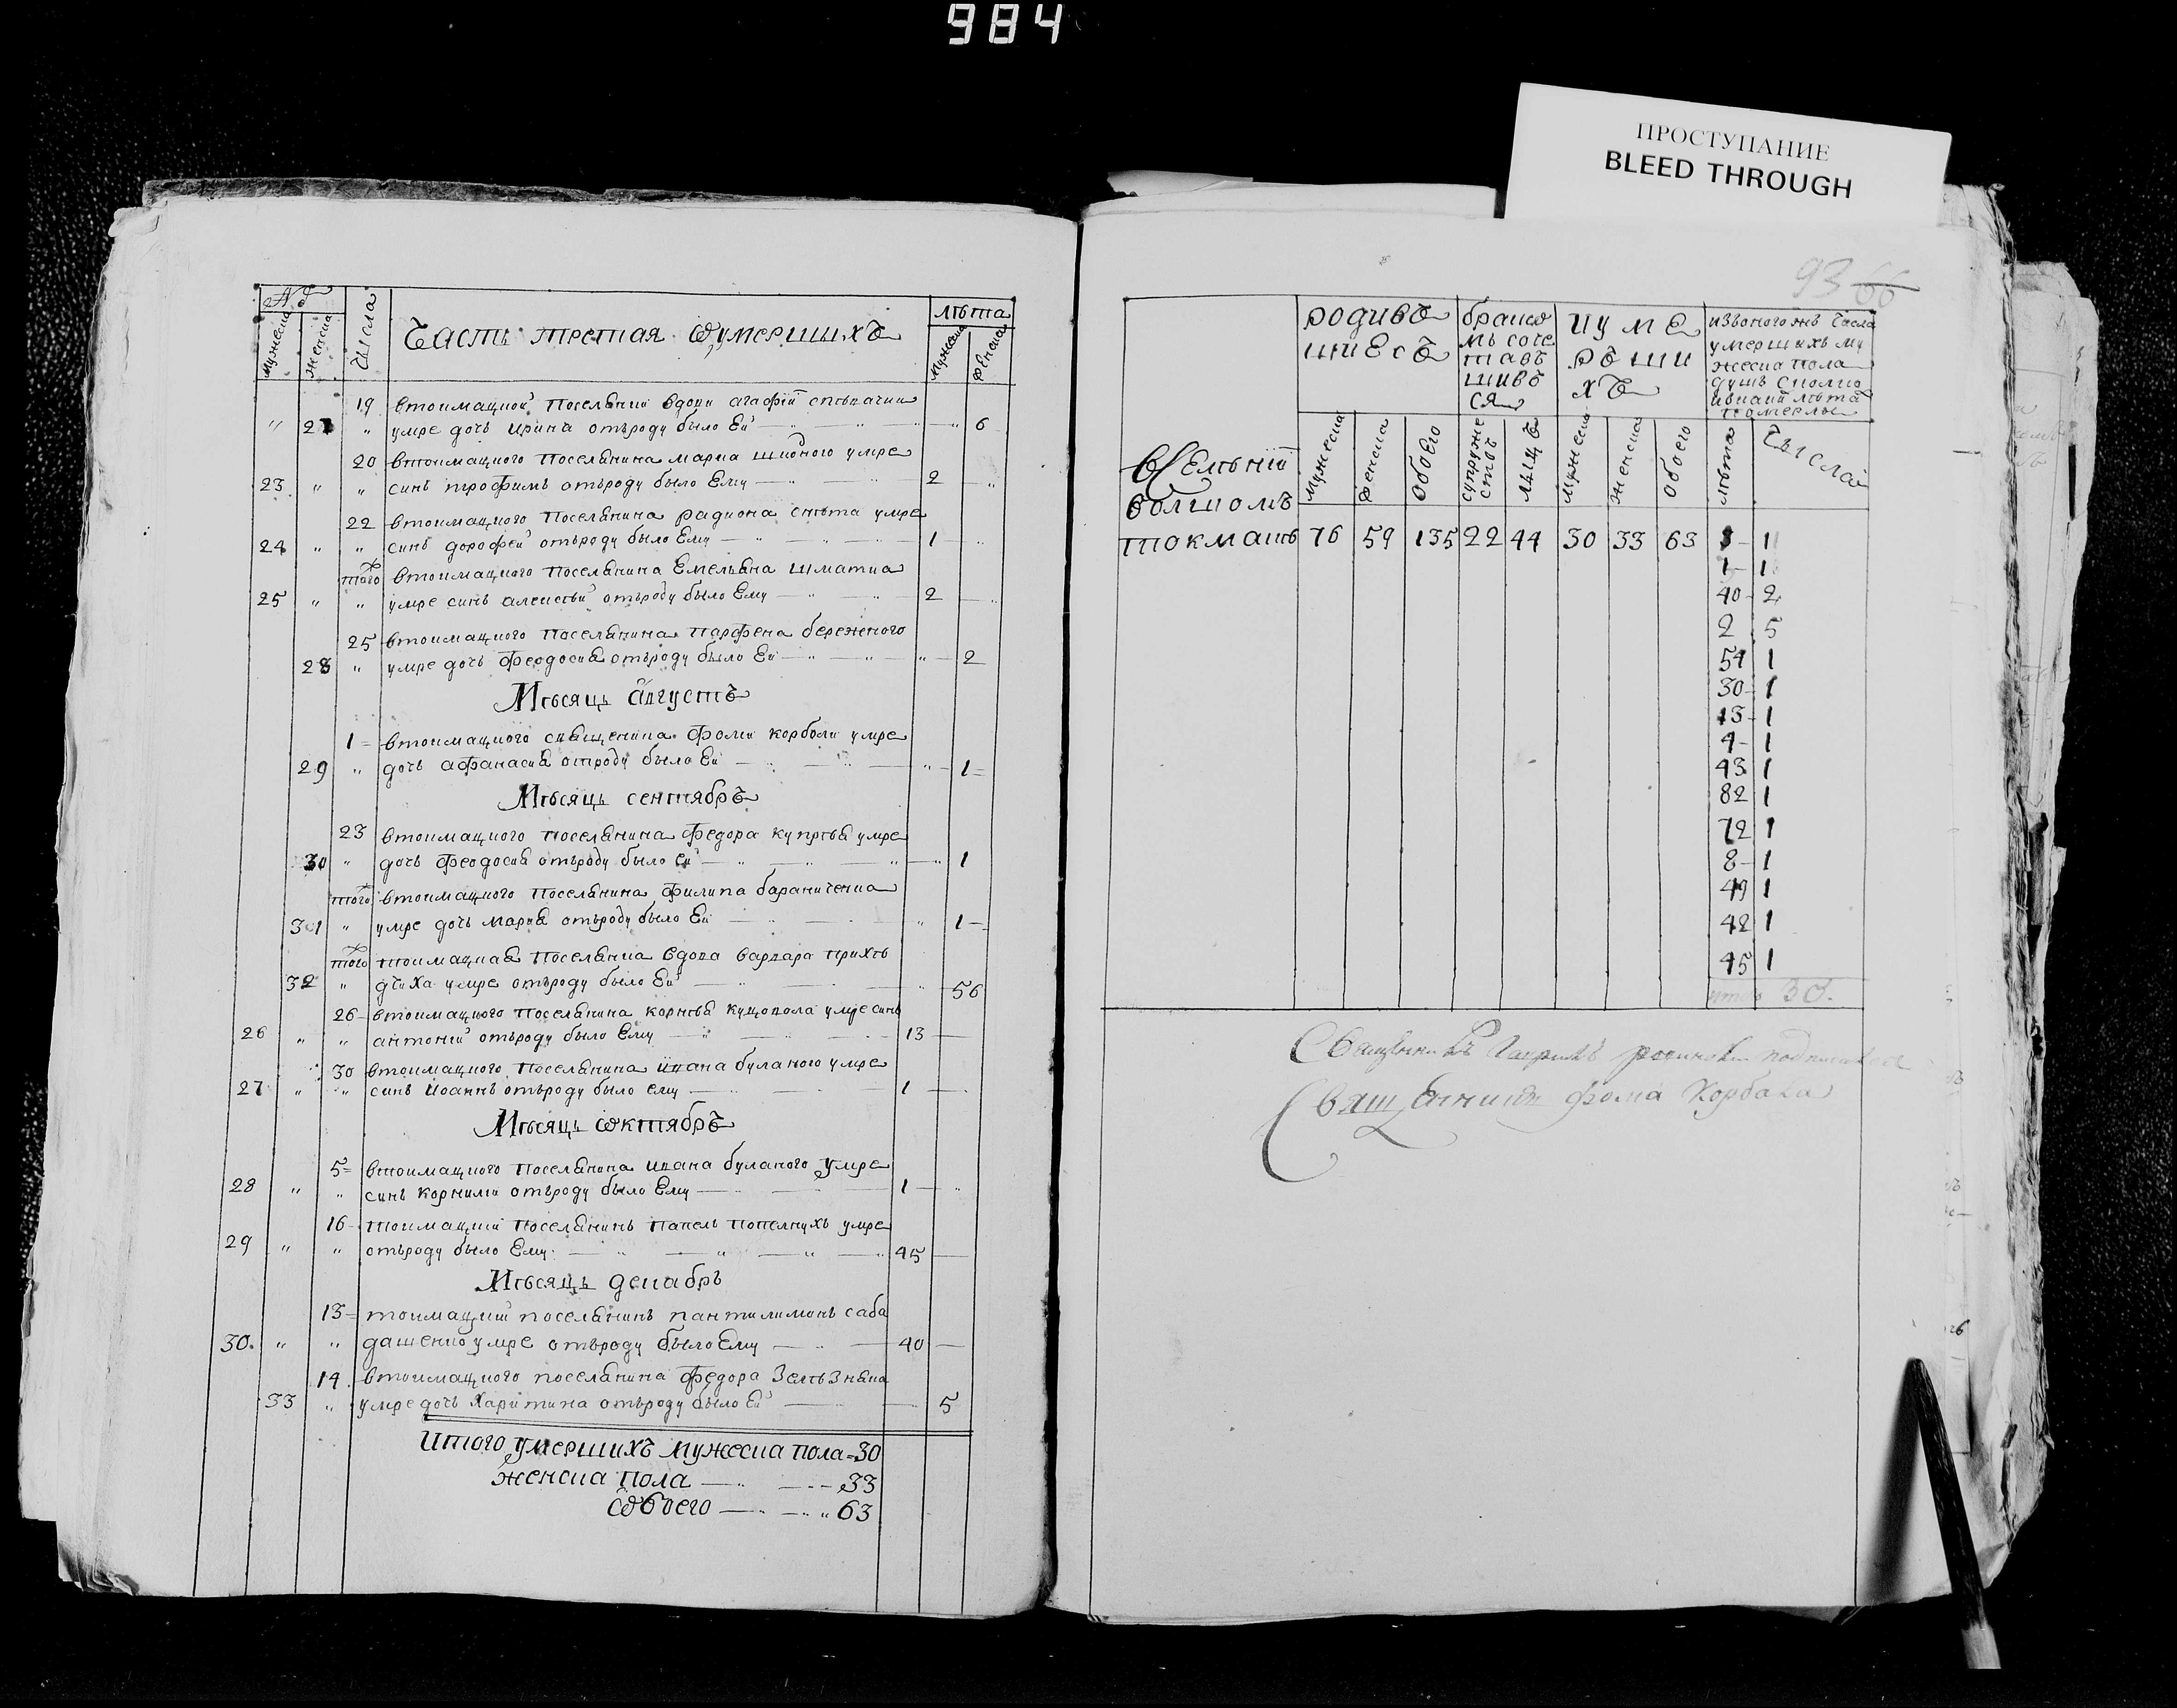 984
ПРОСТУПАНИЕ
BLEED THROUGH
№
мужеска
женска
Числа
Часть третая Ѡумершихъ
лѣта
мужеска
женска
19 втокмацкой поселянки вдови агафіи
" 27 " умре дочь ирина отъроду было Ей 6
20 втокмацкого поселянина марка шидного умре
23 " " синъ трофимъ отъроду было Ему 2
22 втокмацкого поселянина радиона снѣта умре
24 " " синъ дорофей отъроду было Ему 1
того втокмацкого поселянина Емельяна шматка
25 " " умре синъ алексѣй отъроду было Ему 2
25 втокмацкого поселянина парфена бережного
28 " умре дочь феодосия отъроду было Ей " 2
Мѣсяцъ августъ
1 втокмацкого священика фоми корболи умре
29 " дочь афанасия отроду было Ей " 1
Мѣсяцъ сентябръ
23 втокмацкого поселянина федора купрѣя умре
30 " дочь феодосия отъроду было ей 1
того втокмацкого поселянина филипа бараниченка
31 " умре дочь мария отъроду было Ей " 1
того токмацкая поселянка вдова варвара прихо
32 " дчиха умре отъроду было Ей " 56
26 втокмацкого поселянина корнѣя куцовола умре синъ
26 " " антоний отъроду было Ему 13
30 втокмацкого поселянина ивана буланого умре
27 " " синъ Иоаннъ отъроду было ему 1
Мѣсяцъ ѡктябръ
5 втокмацкого поселянина ивана буланого умре
28 " " синъ корнилий отъроду было Ему 1
16 токмацкий поселянинъ павелъ попелнухъ умре
29 " " отъроду было Ему 45
Мѣсяцъ декабръ
13 токмацкий поселянинъ пантилимонъ саба
30. " " дашенко умре отъроду было Ему 40
14 втокмацкого поселянина федора Зелѣзняка
33 " умре дочь Харитина отъроду было Ей 5
Итого умершихъ мужеска пола 30
женска пола 33
Ѡбоего 63
93 66
родивъ
шиесъ
бракѡ
мъ соче
тавъ
шивъ
ся
иуме
ръши
хъ
изъоногожъ числа
умершихъ му
жеска пола
душъ сколко
лѣта
померлы
мужеска
женска
обоего
супруже
ствъ
лицъ
мужеска
женска
обоего
лѣта
числа
вСеленіи
болшомъ
токмакѣ 76 59 135 22 44 30 33 63 11
1 1
40 2
2 5
54 1
30 1
13 1
4 1
43 1
82 1
72 1
8 1
49 1
42 1
45 1
итого 30.
Священникъ подписался
Священникъ фома Корбала